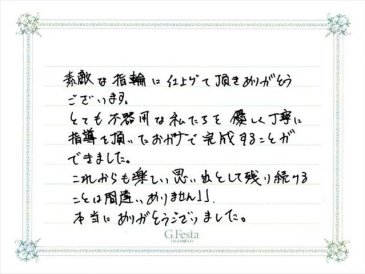 素敵な指輪に仕上げて頂きありがとう
ございます。
とても不器用な私たちを優しく丁寧に
指導を頂いたおかげで完成することが
できました。
これからも楽しい思い出として残り続ける
ことは間違いありません!!
本当にありがとうございました。
G.Festa